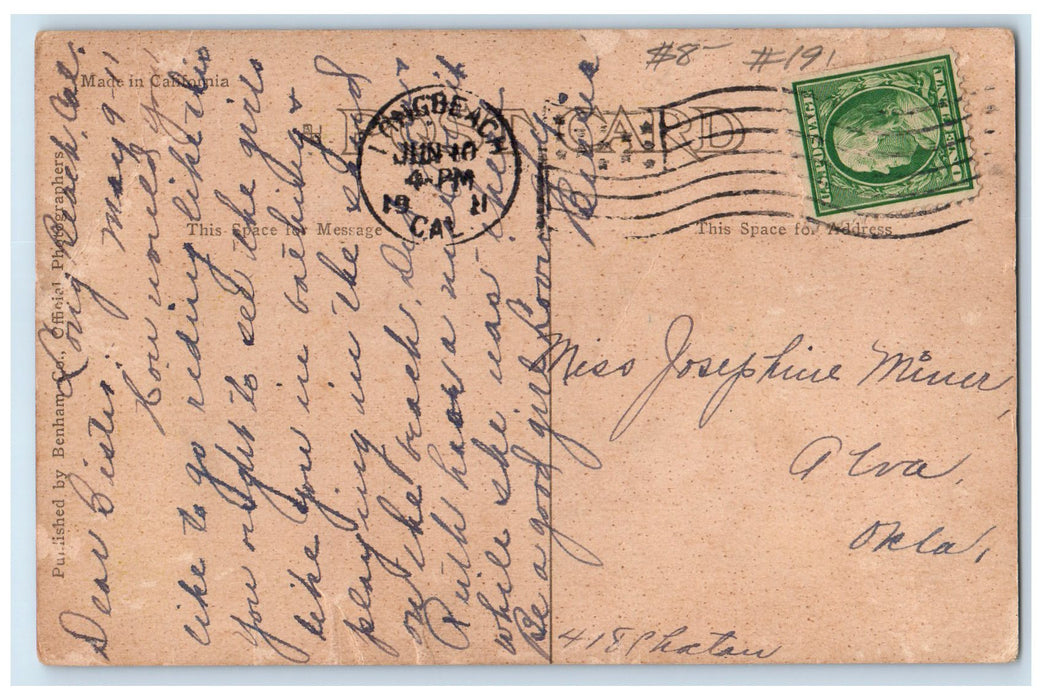 #8- #191
Made in California
POST CARD
LONG BEACH
JUN 10
4-PM
1911
CAL
This Space for Message
This Space for Address
Published by Benham Co., Official Photographers
Long Beach, Cal.
May 9-11
Dear Sister:
How would you
like to go riding like this
You ought to see the girls
like you in bathing &
playing in the sand
on the beach.
Ruth has a nice
while she was
Be a good girl
Miss Josephine Miner,
Alva,
Okla,
418